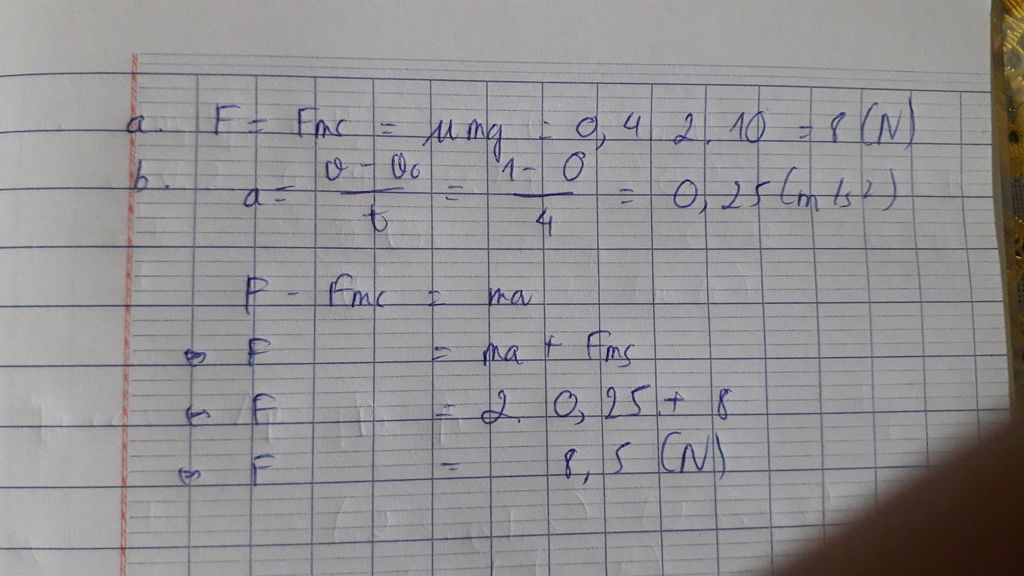 a. F = Fmc = μmg = 0,4 2.10 = 8 (N)
b. a = (v - v₀)/t = (1 - 0)/4 = 0,25 (m/s2)
F - Fmc = ma
⇔ F = ma + Fms
⇔ F = 2. 0,25 + 8
⇔ F = 8,5 (N)